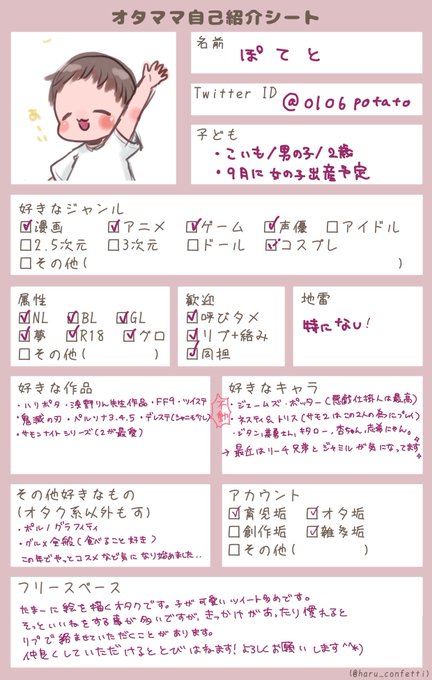 オタママ自己紹介シート
名前
ぽてと
Twitter ID
@0106potato
子ども
・こいも/男の子/2歳
・9月に女の子出産予定
あーい
好きなジャンル
漫画 アニメ ゲーム 声優 アイドル
2.5次元 3次元 ドール コスプレ
その他( )
属性
NL BL GL
夢 R18 グロ
その他( )
歓迎
呼びタメ
リプ+絡み
同担
地雷
特になし!
好きな作品
・ハリポタ・湊野りん先生作品・FF9・ツイステ
・鬼滅の刃・ペルソナ3.4.5・デレステ(シャニも少し)
・サモンナイトシリーズ(2が最愛)
不動
好きなキャラ
・ジェームズ・ポッター(悪戯仕掛人は最高)
・ネスティ&トリス(サモ2はこの2人の為にプレイ)
・ジタン、善逸さん、キタロー、杏ちゃん、志希にゃん。
→最近はリーチ兄弟とジャミルが気になってます
その他好きなもの
(オタク系以外もす)
・ポルノグラフィティ
・グルメ全般(食べること好き)
この年でやっとコスメなど気になり始めました..
アカウント
育児垢 オタ垢
創作垢 雑多垢
その他( )
フリースペース
たまーに絵を描くオタクです。子が可愛いツイート多めです。
そっといいねをする事が多いですが、きっかけがあったり慣れると
リプで絡ませていただくことがあります。
仲良くしていただけるととびはねます!よろしくお願いします^^*)
(@haru_confetti)